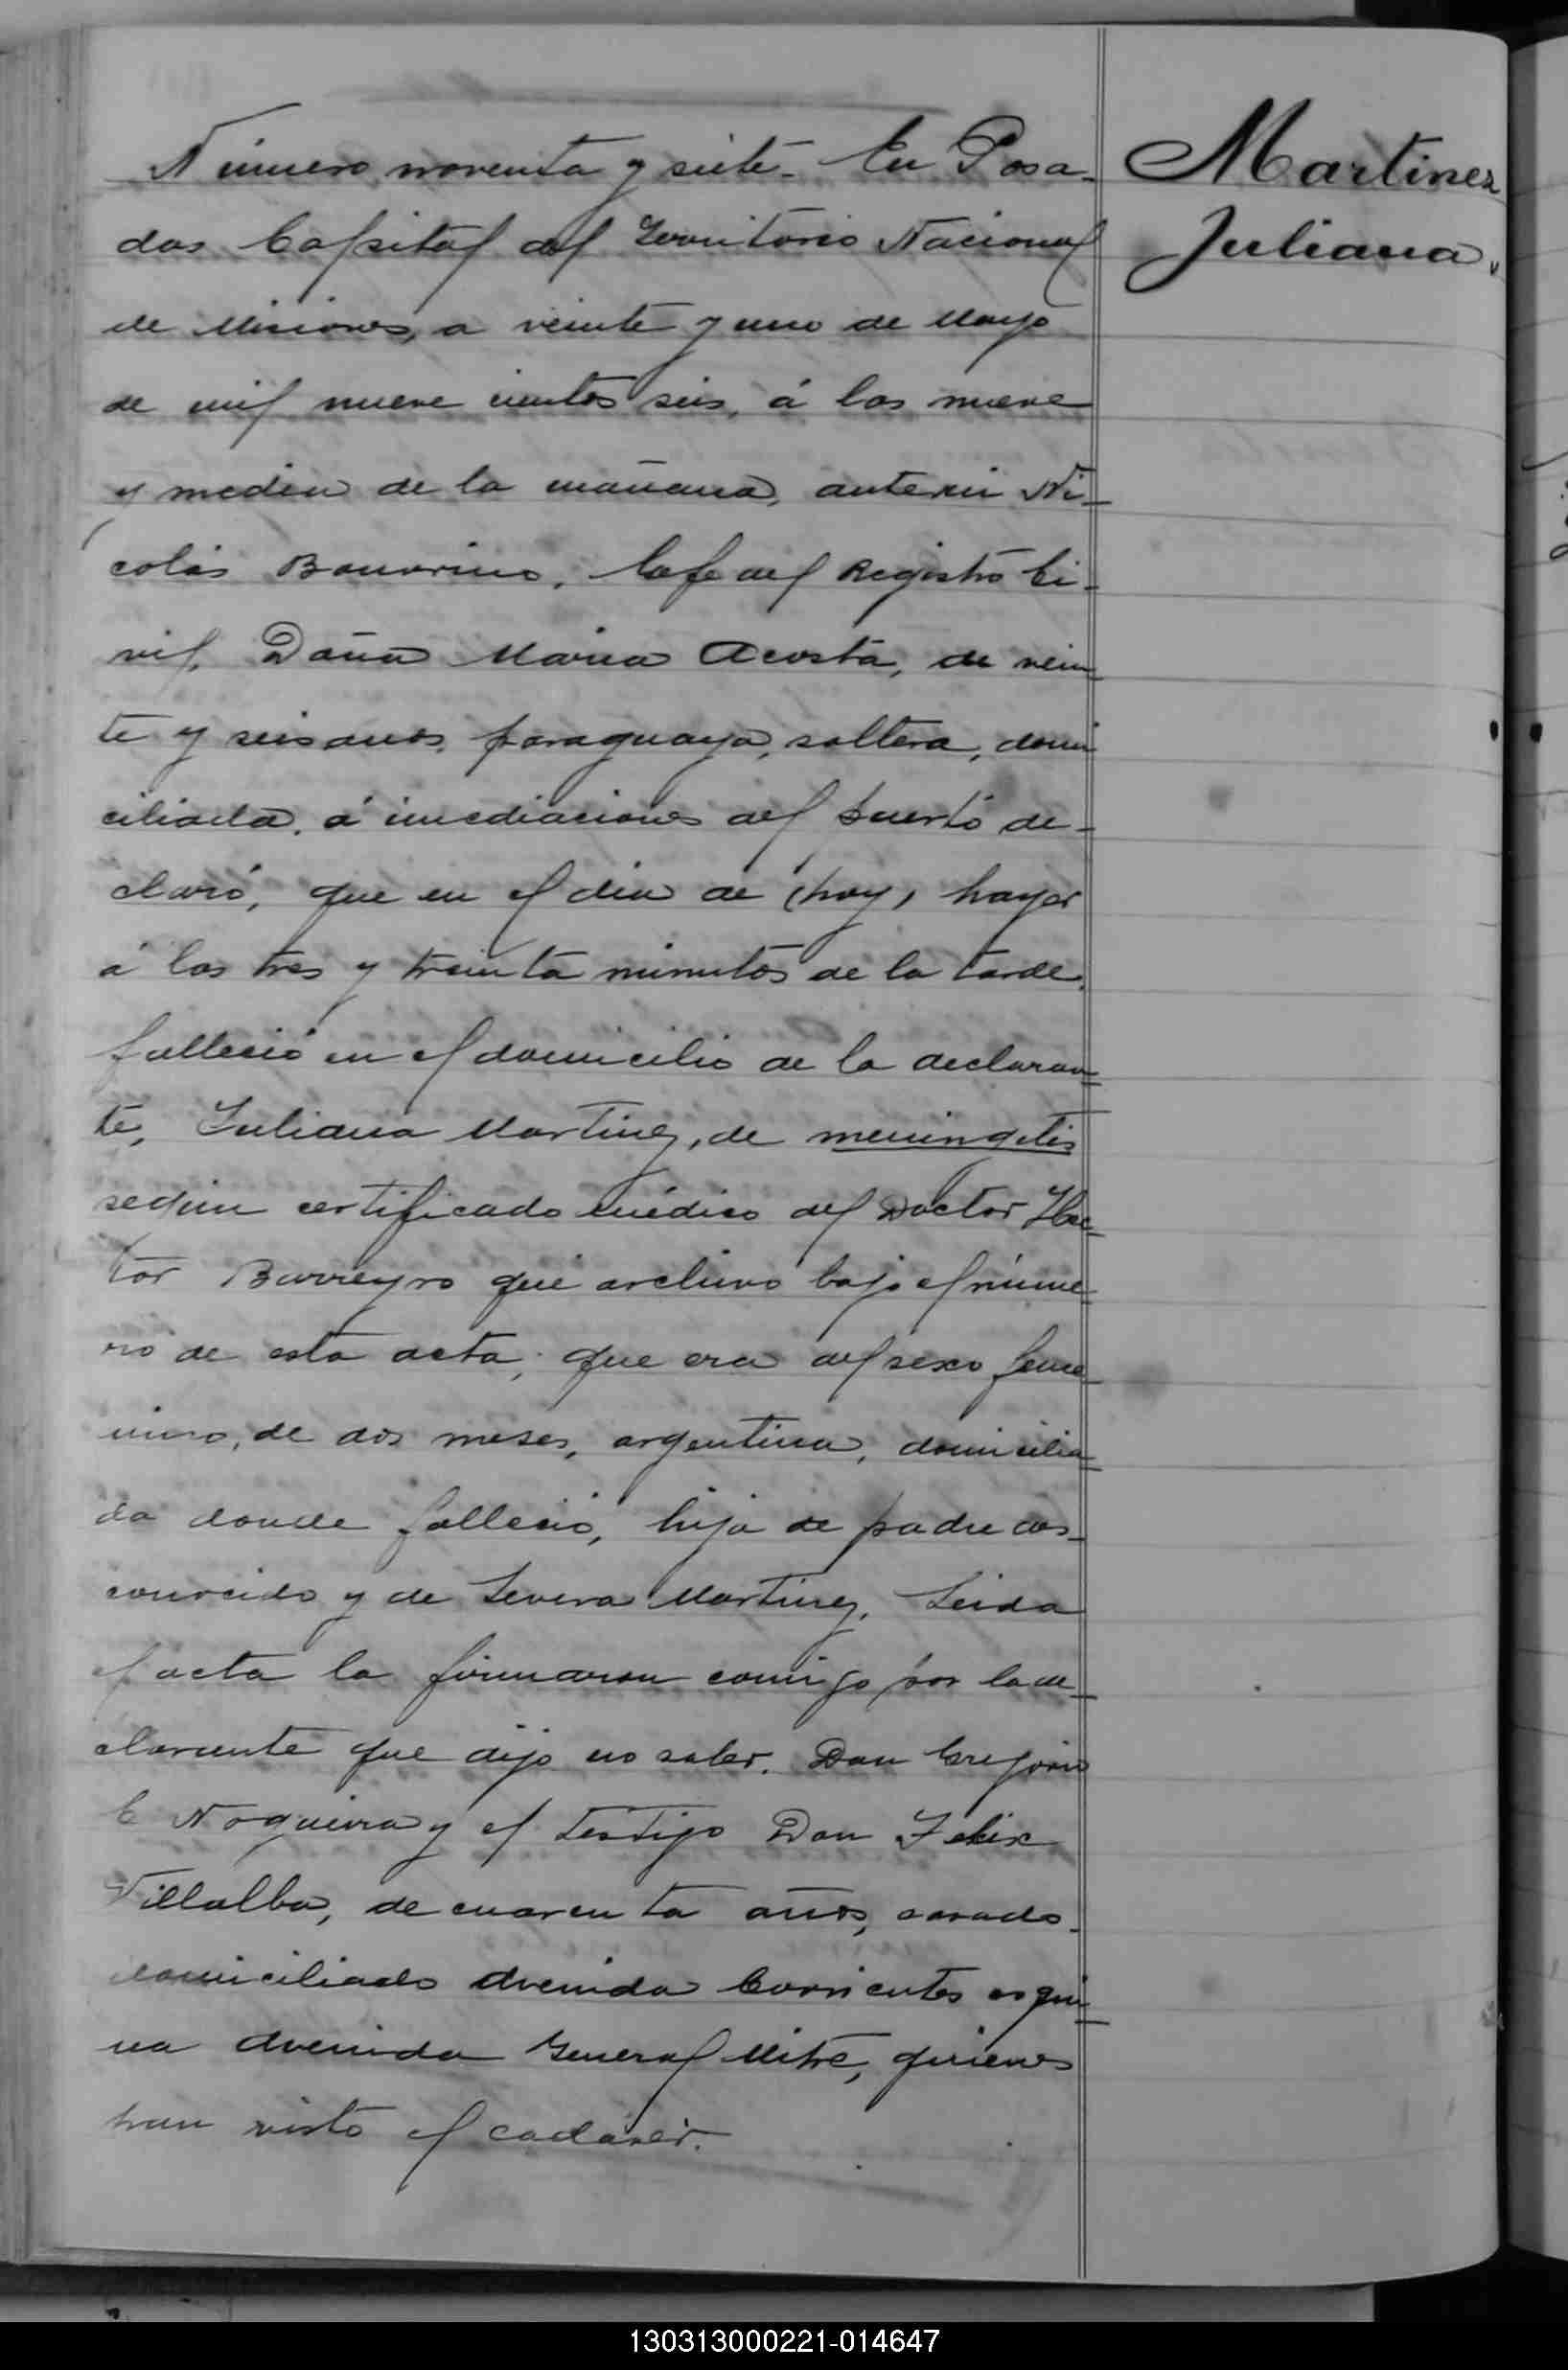 Número noventa y siete. En Posa-
das Capital del Territorio Nacional
de Misiones, a veinte y uno de Mayo
de mil nueve cientos seis, á las nueve
y media de la mañana, ante mi Ni-
colás Bonorino, Gefe del Registro Ci-
vil, Doña Maria Acosta, de vein-
te y seis años, paraguaya, soltera, domi
ciliada, á inmediaciones del puerto de-
claró, que en el dia de (hoy) hayer
á las tres y treinta minutos de la tarde,
falleció en el domicilio de la declaran-
te, Juliana Martinez, de meningitis
según certificado médico del Doctor Hec-
tor Barreyro que archivo bajo el núme-
ro de esta acta; que era del sexo feme-
nino, de dos meses, argentina, domicilia-
da donde falleció, hija de padre des-
conocido y de Severa Martinez. Leida
el acta la firmaron comigo por la de-
clarante que dijo no saber, Don Gregorio
C Nogueira y el testigo Don Felix
Villalba, de cuarenta años, casado,
domiciliado Avenida Corrientes esqui-
na Avenida General Mitre, quienes
han visto el cadáver.
Martinez
Juliana.
130313000221-014647